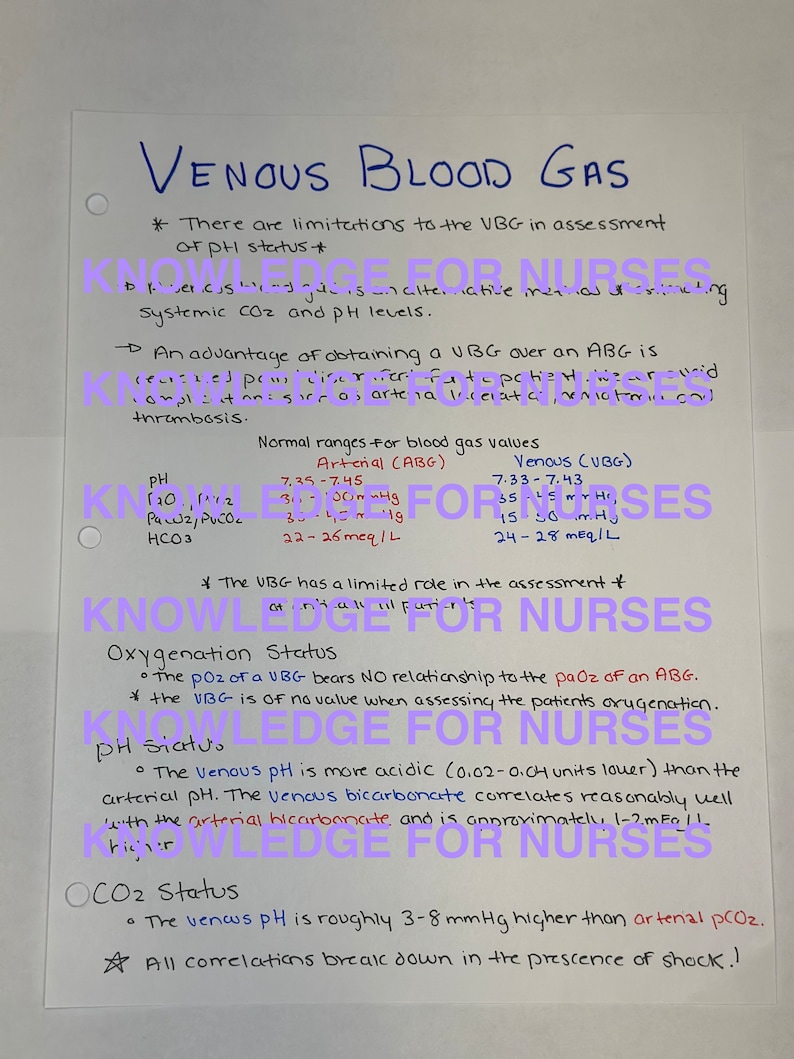 VENOUS BLOOD GAS
* There are limitations to the VBG in assessment
of pH status *
KNOWLEDGE FOR NURSES
is an alternative method of estimating
systemic CO2 and pH levels.
→ An advantage of obtaining a VBG over an ABG is
KNOWLEDGE FOR NURSES
and
thrombosis.
Normal ranges for blood gas values
Arterial (ABG) Venous (VBG)
pH 7.35-7.45 7.33-7.43
KNOWLEDGE FOR NURSES
PaCO2/PvCO2
HCO3 22-26 meq/L 24-28 mEq/L
* The VBG has a limited role in the assessment *
of critically ill patients
KNOWLEDGE FOR NURSES
Oxygenation Status
° The pO2 of a VBG bears NO relationship to the paO2 of an ABG.
* the VBG is of no value when assessing the patients oxygenation.
KNOWLEDGE FOR NURSES
pH Status
° The venous pH is more acidic (0.02-0.04 units lower) than the
arterial pH. The venous bicarbonate correlates reasonably well
with the arterial bicarbonate and is approximately 1-2 mEq/L
KNOWLEDGE FOR NURSES
higher
CO2 Status
° The venous pH is roughly 3-8 mmHg higher than arterial pCO2.
☆ All correlations break down in the prescence of shock.!